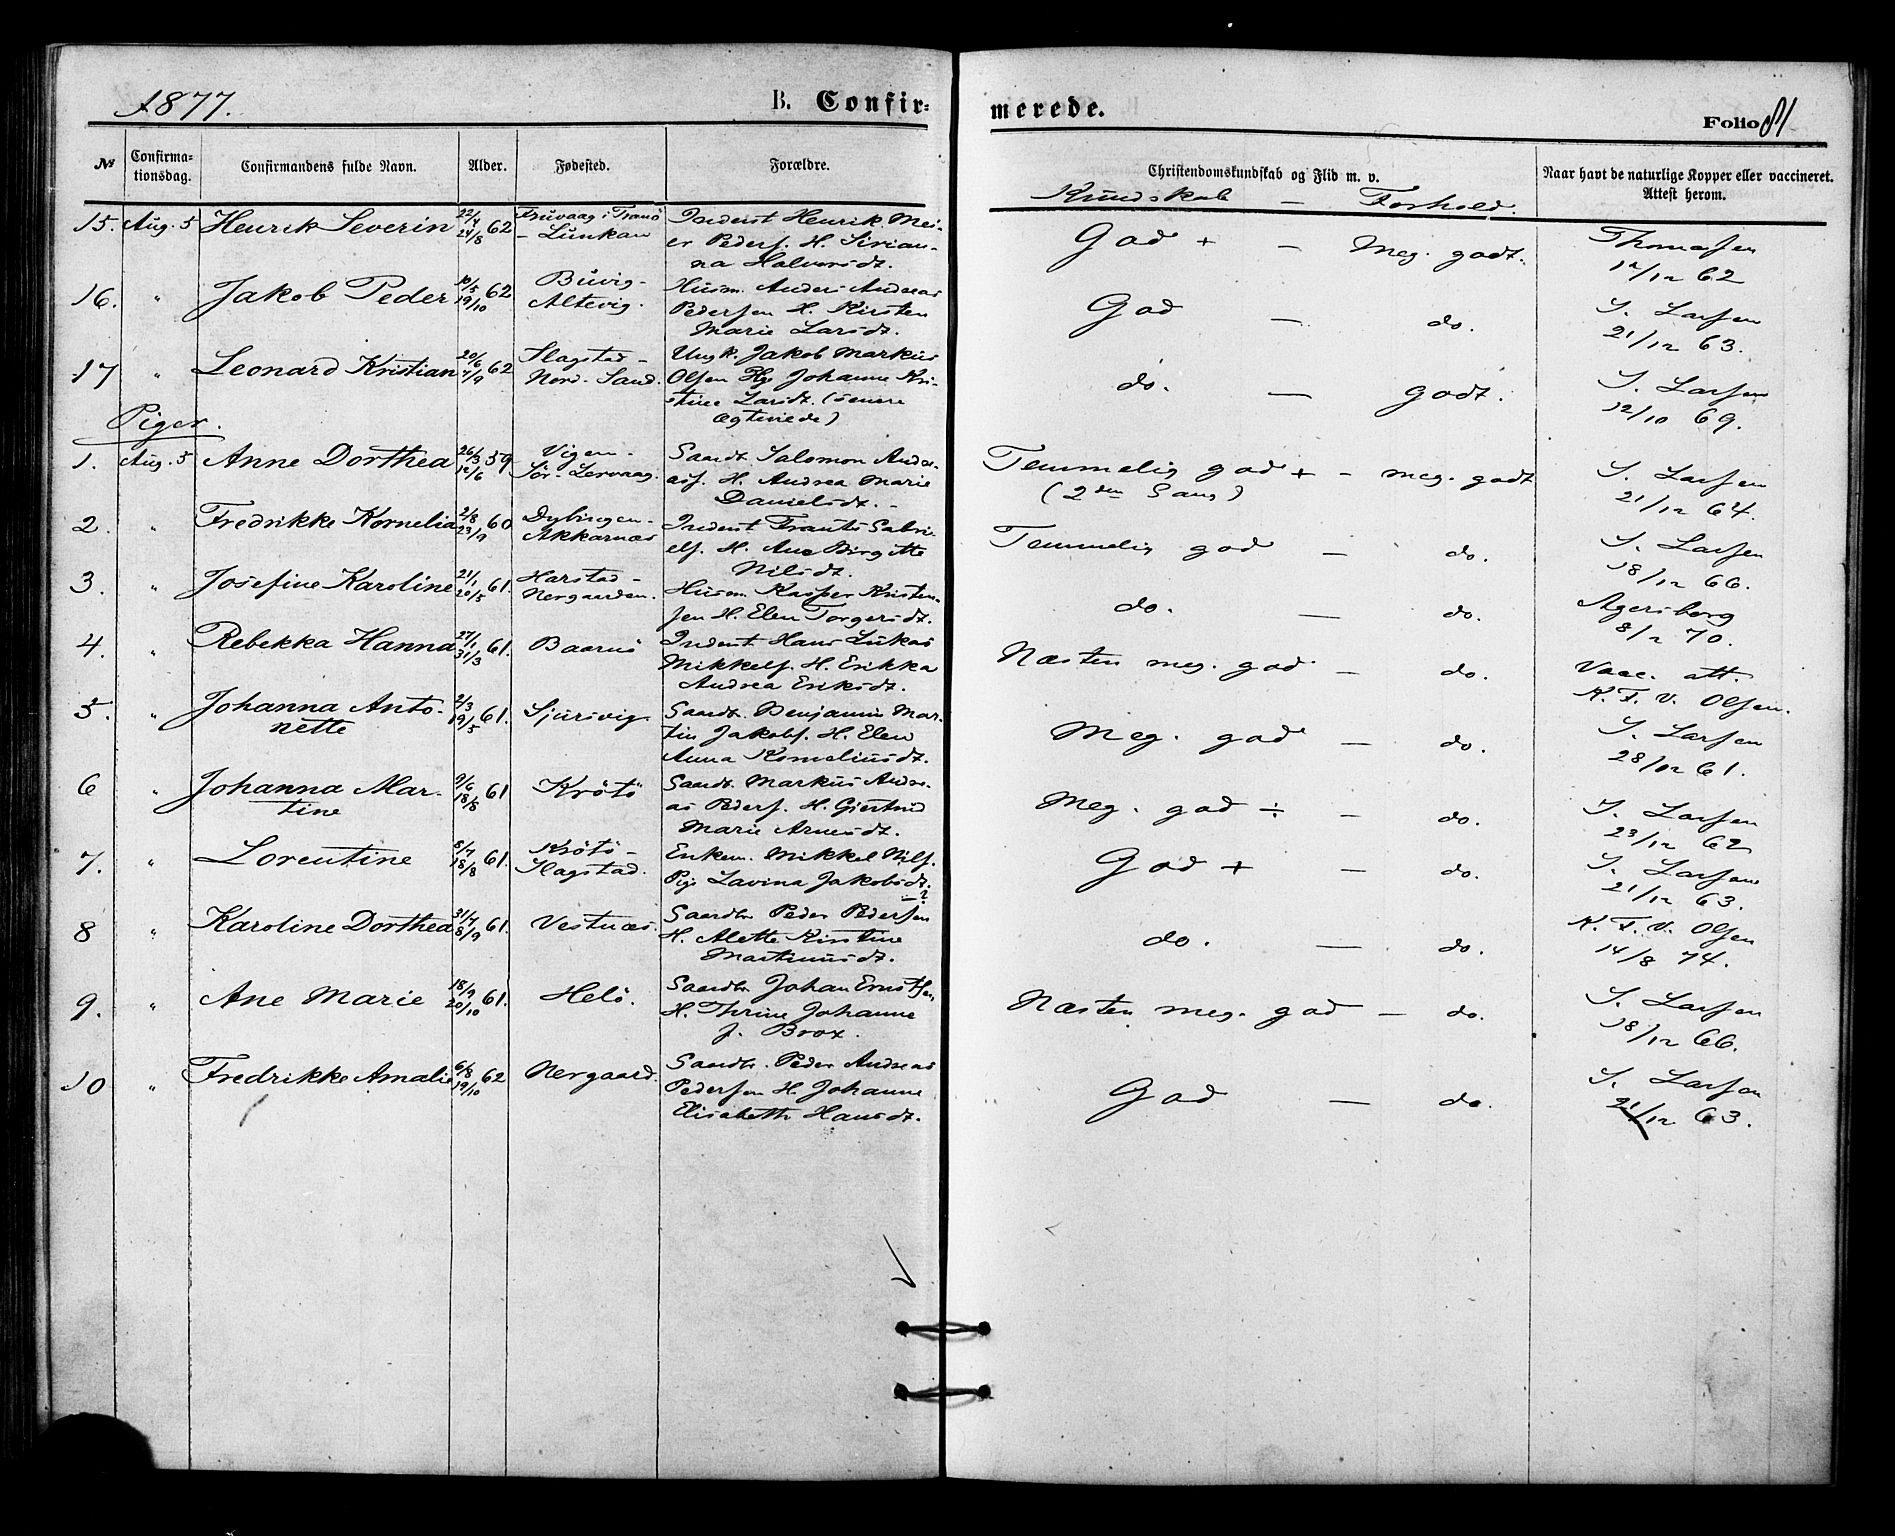 1877.
B. Confir-
merede.
Folio 81
№
Confirma-
tionsdag.
Confirmandens fulde Navn.
Alder.
Fødested.
Forældre.
Christendomskundskab og Flid m. v.
Naar havt de naturlige Kopper eller vaccineret.
Attest herom.
Kundskab — Forhold.
15. Aug. 5 Henrik Severin 22/4 24/8 62 Fruvaag i Tranö
- Lunkan
Inderst Henrik Mei-
er Peders. H. Sirian-
na Halvorsdt.
God + — Meg. godt.
Thomassen
12/12 62
16. " Jakob Peder 10/5 19/10 62 Buvig-
Altevig.
Husm. Anders Andreas
Pedersen H. Kirsten
Marie Larsdt.
God — do.
S. Larsen
21/12 63.
17 " Leonard Kristian 20/6 7/9 62 Slagstad-
Nord-Sand.
Ungk. Jakob Markus
Olsen Pige Johanne Kri-
stine Larsdt. (senere
ægteviede)
do. — godt.
S. Larsen
12/10 69.
Piger.
1. Aug. 5 Anne Dorthea 26/3 12/6 59 Vigen-
Sör-Lervaag.
Gaardbr. Salomon Andre-
ass. H. Andrea Marie
Danielsdt.
Temmelig god + - meg. godt
(2den Gang)
S. Larsen
21/12 64.
2. " Fredrikke Kornelia 2/8 23/9 60 Dybingen-
Akkarnæs
Inderst Frants Gabri-
els. H. Ane Birgitte
Nilsdt.
Temmelig god — do.
S. Larsen
18/12 66.
3. " Josefine Karoline 21/1 20/5 61. Harstad-
Nergaarden.
Husm. Kasper Kristen-
sen H. Elen Torgersdt.
do. — do.
Agersborg
8/2 70.
4. " Rebekka Hanna 27/1 31/3 61. Baarus
Inderst Hans Lukas
Mikkels. H. Erikka
Andrea Eriksdt.
Næsten meg. god — do.
Vacc. att.
K. F. V. Olsen.
5. " Johanna Anto-
nette 2/3 19/5 61. Sjursvig.
Gaardbr. Benjamin Mar-
tin Jakobs. H. Elen
Anna Korneliusdt.
Meg. god — do.
S. Larsen
28/12 61.
6 " Johanna Mar-
tine 9/6 18/8 61 Krötö
Gaardbr. Markus Andre-
as Peders. H. Gjertrud
Marie Arnesdt.
Meg. god ÷ — do.
S. Larsen
23/12 62
7. " Lorentine 8/7 18/8 61. Krötö-
Slagstad.
Enkem. Mikkel Nils.
Pige Lavina Jakobsdt.
God + — do.
S. Larsen
21/12 63.
8 " Karoline Dorthea 31/7 8/9 61. Vestnæs.
Gaardbr Peder Pedersen
H. Alette Kirstine
Martinusdt.
do. — do.
K. F. V. Olsen
14/8 74.
9. " Ane Marie 18/9 20/10 61. Helö.
Gaardbr Johan Ernstsen,
H. Thrine Johanne
f. Brox.
Næsten meg. god — do.
S. Larsen
18/12 66.
10 " Fredrikke Amalie 6/8 19/10 62 Nergaard.
Gaardbr. Peder Andreas
Pedersen H. Johanne
Elisabeth Hansdt.
God — do.
S. Larsen
21/12 63.